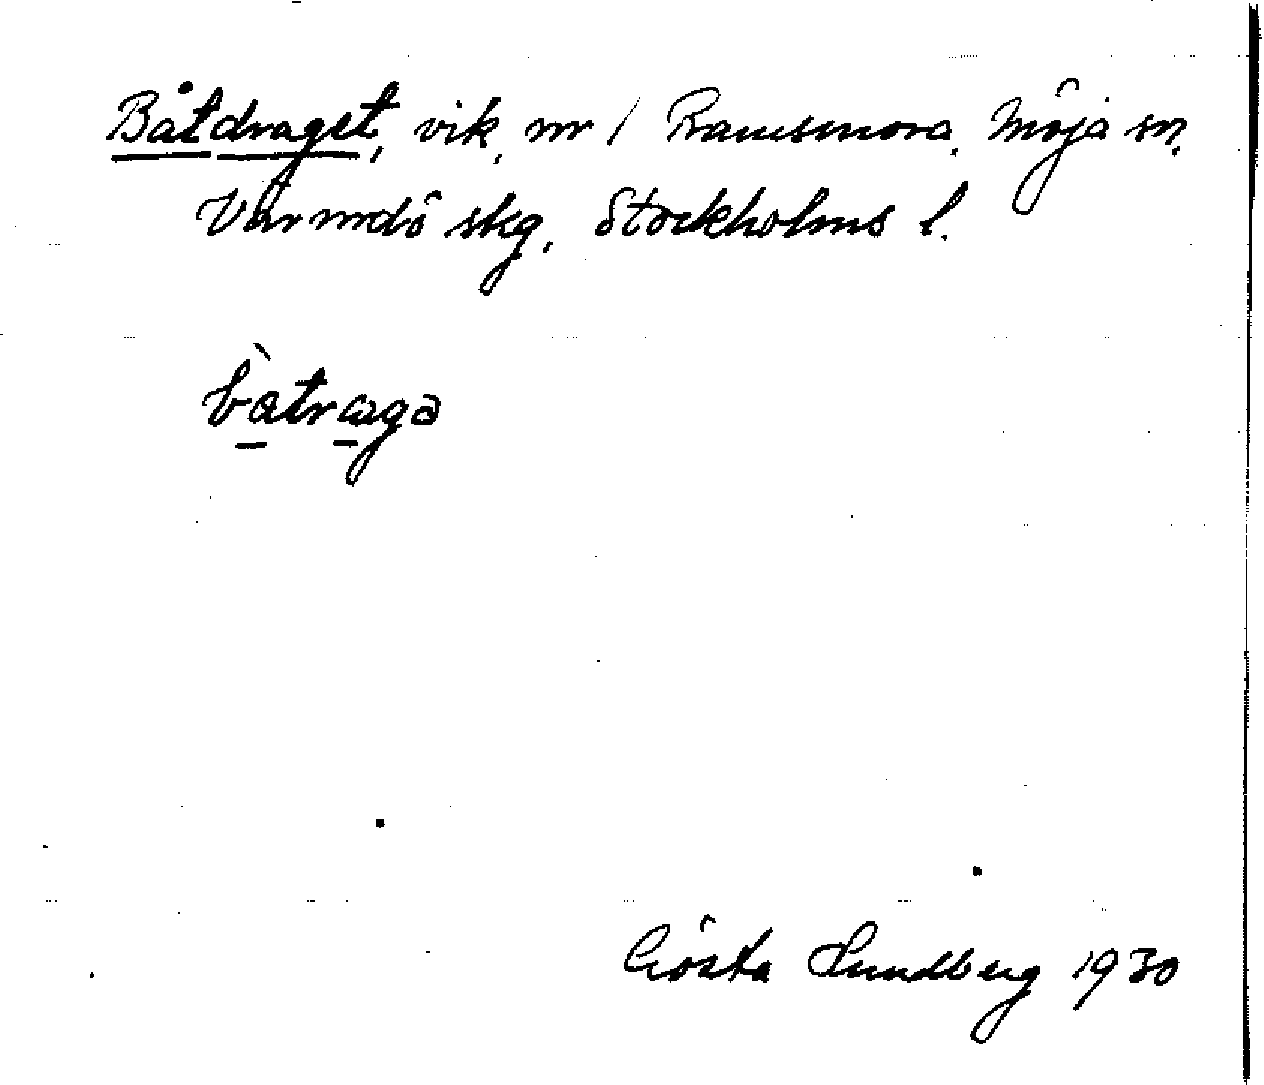 Båtdraget, vik, nr 1 Ramsmora, Möja sn,
Värmdö skg, Stockholms l.
bàtraga
Gösta Lundberg 1930